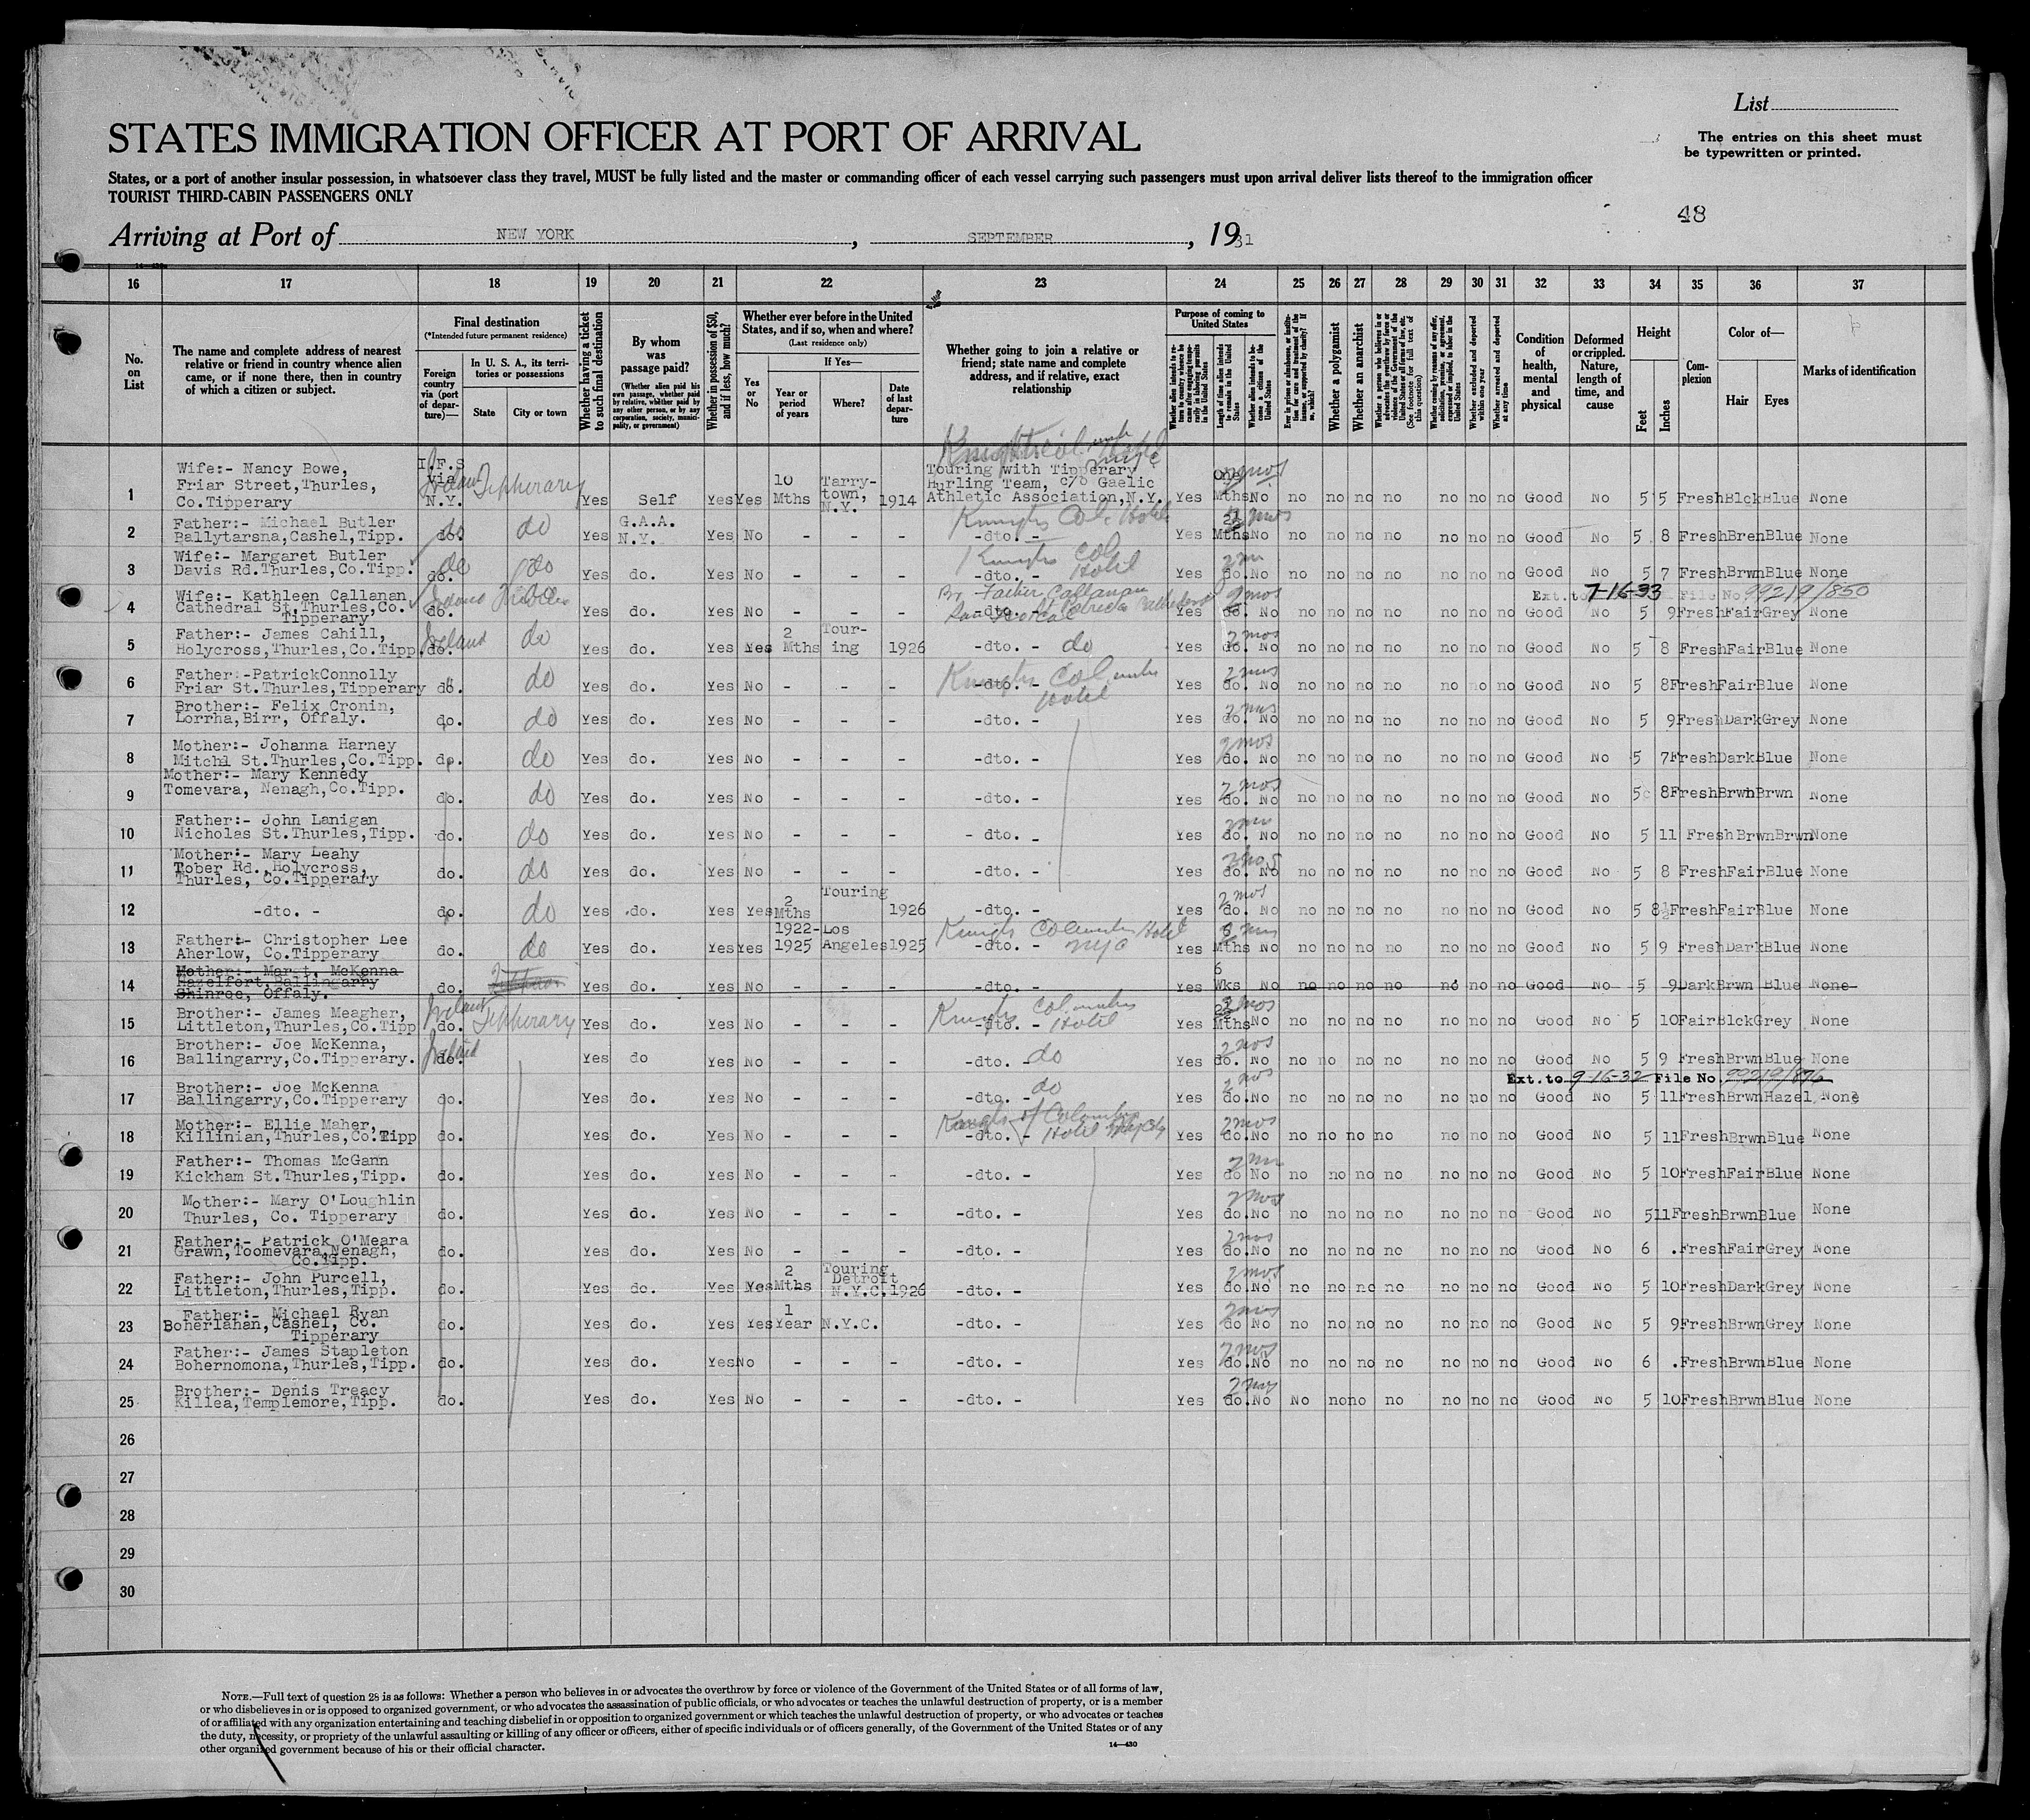 List
STATES IMMIGRATION OFFICER AT PORT OF ARRIVAL
The entries on this sheet must
be typewritten or printed.
States, or a port of another insular possession, in whatsoever class they travel, MUST be fully listed and the master or commanding officer of each vessel carrying such passengers must upon arrival deliver lists thereof to the immigration officer
TOURIST THIRD-CABIN PASSENGERS ONLY
48
Arriving at Port of NEW YORK, SEPTEMBER, 1931
16 17 18 19 20 21 22 23 24 25 26 27 28 29 30 31 32 33 34 35 36 37
No. on List
The name and complete address of nearest relative or friend in country whence alien came, or if none there, then in country of which a citizen or subject.
Final destination
(*Intended future permanent residence)
Foreign country via (port of departure)—
In U. S. A., its territories or possessions
State City or town
Whether having a ticket to such final destination
By whom was passage paid?
(Whether alien paid his own passage, whether paid by relative, whether paid by any other person, or by any corporation, society, municipality, or government)
Whether in possession of $50, and if less, how much?
Whether ever before in the United States, and if so, when and where?
(Last residence only)
Yes or No
If Yes—
Year or period of years
Where?
Date of last departure
Whether going to join a relative or friend; state name and complete address, and if relative, exact relationship
Purpose of coming to United States
Length of time alien intends to remain in the United States
Whether alien intends to become a citizen of the United States
Whether a polygamist
Whether an anarchist
Whether excluded and deported within one year
Whether arrested and deported at any time
Condition of health, mental and physical
Deformed or crippled. Nature, length of time, and cause
Height
Feet Inches
Complexion
Color of—
Hair Eyes
Marks of identification
Knights Columbus Hotel
1 Wife:- Nancy Bowe, Friar Street, Thurles, Co.Tipperary I.F.S via N.Y. Ireland Tipperary Yes Self Yes Yes 10 Mths Tarrytown, N.Y. 1914 Touring with Tipperary Hurling Team, c/o Gaelic Athletic Association, N.Y. Yes One Mths No no no no no no no no Good No 5 5 Fresh Blck Blue None
2 Father:- Michael Butler Ballytarsna, Cashel, Tipp. do do G.A.A. N.Y. Yes No - - - -dto. - Knights Col. Hotel Yes 2 Mths No no no no no no no no Good No 5 8 Fresh Bren Blue None
3 Wife:- Margaret Butler Davis Rd. Thurles, Co.Tipp. do. do Yes do. Yes No - - - -dto. - Knights Col Hotel Yes do. No no no no no no no no Good No 5 7 Fresh Brwn Blue None
Ext. to 7-16-33 File No 99219/850
4 Wife:- Kathleen Callanan Cathedral St. Thurles, Co. Tipperary do. Yes do. Yes No - - - -dto. - Br Father Callanan Yes do. No no no no no no no no Good No 5 9 Fresh Fair Grey None
5 Father:- James Cahill, Holycross, Thurles, Co.Tipp. do. Ireland do Yes do. Yes Yes 2 Mths Touring 1926 -dto. - do Yes 2 mos do. No no no no no no no no Good No 5 8 Fresh Fair Blue None
6 Father:-PatrickConnolly Friar St. Thurles, Tipperary do. do Yes do. Yes No - - - -dto. - Knights Columbus Hotel Yes 2 mos do. No no no no no no no no Good No 5 8 Fresh Fair Blue None
7 Brother:- Felix Cronin, Lorrha, Birr, Offaly. do. do Yes do. Yes No - - - -dto. - Yes 2 mos do. No no no no no no no no Good No 5 9 Fresh Dark Grey None
8 Mother:- Johanna Harney Mitchl St. Thurles, Co.Tipp. do. do Yes do. Yes No - - - -dto. - Yes 2 mos do. No no no no no no no no Good No 5 7 Fresh Dark Blue None
9 Mother:- Mary Kennedy Tomevara, Nenagh, Co.Tipp. do. do Yes do. Yes No - - - -dto. - Yes 2 mos do. No no no no no no no no Good No 5 8 Fresh Brwn Brwn None
10 Father:- John Lanigan Nicholas St. Thurles, Tipp. do. do Yes do. Yes No - - - - dto. - Yes do. No no no no no no no no Good No 5 11 Fresh Brwn Brwn None
11 Mother:- Mary Leahy Tober Rd., Holycross, Thurles, Co.Tipperary do. do Yes do. Yes No - - - -dto. - Yes 2 mos do. No no no no no no no no Good No 5 8 Fresh Fair Blue None
12 -dto. - do. do Yes do. Yes Yes 2 Mths Touring 1926 -dto. - Yes 2 mos do. No no no no no no no no Good No 5 8½ Fresh Fair Blue None
13 Father:- Christopher Lee Aherlow, Co.Tipperary do. do Yes do. Yes Yes 1922-1925 Los Angeles 1925 -dto. - Knights Columbus Hotel NYC Yes Mths No no no no no no no no Good No 5 9 Fresh Dark Blue None
14 Mother:- Margt, McKenna Hazelfort, Ballingarry Shinroe, Offaly. do. Yes do. Yes No - - - -dto. - Yes 6 Wks No no no no no no no no Good No 5 9 Dark Brwn Blue None
15 Brother:- James Meagher, Littleton, Thurles, Co.Tipp do. Ireland Tipperary Yes do. Yes No - - - -dto. - Knights Columbus Hotel Yes 2 mos Mths No no no no no no no no Good No 5 10 Fair Blck Grey None
16 Brother:- Joe McKenna, Ballingarry, Co.Tipperary. do. Ireland Yes do Yes No - - - -dto. - do Yes 2 mos do. No no no no no no no no Good No 5 9 Fresh Brwn Blue None
Ext. to 9-16-32 File No. 99219/876
17 Brother:- Joe McKenna Ballingarry, Co.Tipperary do. Yes do. Yes No - - - -dto. - do Yes 2 mos do. No no no no no no no no Good No 5 11 Fresh Brwn Hazel None
18 Mother:- Ellie Maher, Killinian, Thurles, Co.Tipp do. Yes do. Yes No - - - -dto. - Knights of Columbus Hotel Yes 2 mos do. No no no no no no no no Good No 5 11 Fresh Brwn Blue None
19 Father:- Thomas McGann Kickham St. Thurles, Tipp. do. Yes do. Yes No - - - -dto. - Yes do No no no no no no no no Good No 5 10 Fresh Fair Blue None
20 Mother:- Mary O'Loughlin Thurles, Co. Tipperary do. Yes do. Yes No - - - -dto. - Yes 2 mos do. No no no no no no no no Good No 5 11 Fresh Brwn Blue None
21 Father:- Patrick O'Meara Grawn, Toomevara, Nenagh, Co.Tipp. do. Yes do. Yes No - - - -dto. - Yes 2 mos do. No no no no no no no no Good No 6 . Fresh Fair Grey None
22 Father:- John Purcell, Littleton, Thurles, Tipp. do. Yes do. Yes Yes 2 Mths Touring Detroit N.Y.C. 1926 -dto. - Yes 2 mos do. No no no no no no no no Good No 5 10 Fresh Dark Grey None
23 Father:- Michael Ryan Boherlahan, Cashel, Co. Tipperary do. Yes do. Yes Yes 1 Year N.Y.C. -dto. - Yes 2 mos do No no no no no no no no Good No 5 9 Fresh Brwn Grey None
24 Father:- James Stapleton Bohernomona, Thurles, Tipp. do. Yes do. Yes No - - - -dto. - Yes 2 mos do. No no no no no no no no Good No 6 . Fresh Brwn Blue None
25 Brother:- Denis Treacy Killea, Templemore, Tipp. do. Yes do. Yes No - - - -dto. - Yes 2 mos do. No No no no no no no no Good No 5 10 Fresh Brwn Blue None
26
27
28
29
30
NOTE.—Full text of question 28 is as follows: Whether a person who believes in or advocates the overthrow by force or violence of the Government of the United States or of all forms of law,
or who disbelieves in or is opposed to organized government, or who advocates the assassination of public officials, or who advocates or teaches the unlawful destruction of property, or is a member
of or affiliated with any organization entertaining and teaching disbelief in or opposition to organized government or which teaches the unlawful destruction of property, or who advocates or teaches
the duty, necessity, or propriety of the unlawful assaulting or killing of any officer or officers, either of specific individuals or of officers generally, of the Government of the United States or of any
other organized government because of his or their official character.
14—430